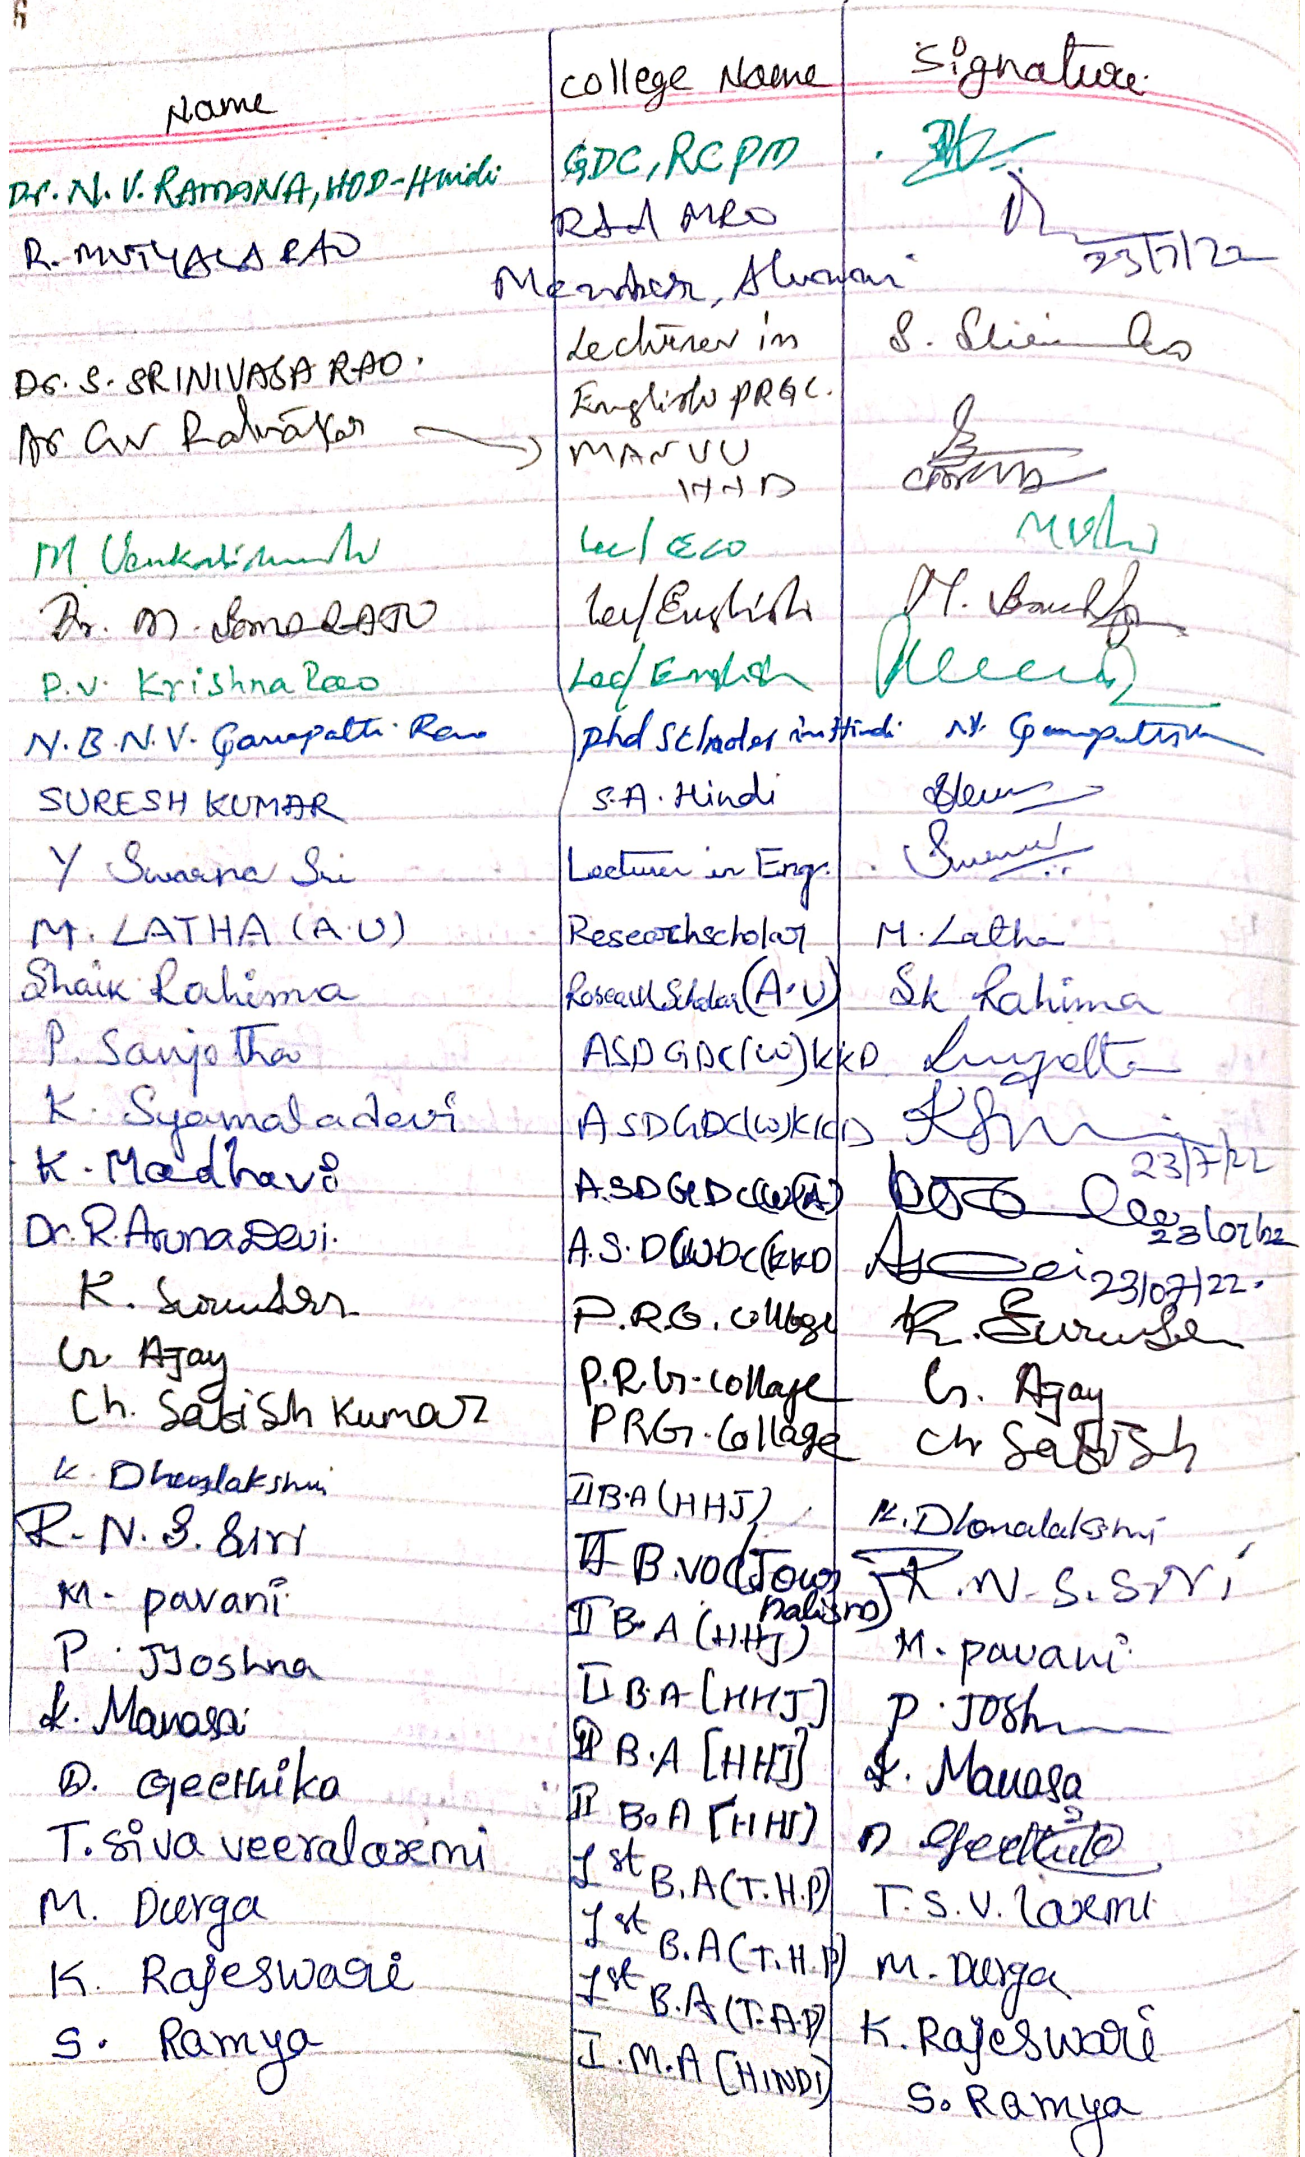 Name College Name Signature
Dr. N. V. RAMANA, HOD-Hindi GDC, RCPM
R. MUTYALA RAO Rtd MRO 23/7/22
Member, Alumni
Dr. S. SRINIVASA RAO. Lecturer in S.
English PRGC.
Dr GV Ratnākar MANUU
HHD
M Lec/ Eco
Dr. M. Somaraju Lec/English M.
P.V. Krishna Rao Lec/ English
N. B. N. V. Ganapathi Rao phd Scholar in Hindi N.
SURESH KUMAR S.A. Hindi
Y Swarna Sri Lecturer in Eng.
M. LATHA (A.U) Researchscholar M. Latha
Shaik Rahima Research Scholar (A.U) Sk Rahima
P. Sanjotha ASD GDC(W)KKD
K. Syamaladevi ASDGDC(W)KKD
23/7/22
K. Madhavi A.SDGDC(W)(A) 23/07/22
Dr. R. Aruna Devi. A.S.DGDC(KKD 23/07/22.
K. Surender P.R.G. College K. Surender
G. Ajay P.R.G-collage G. Ajay
Ch. Satish Kumar PRG.Collage Ch Satish
K. Dhanalakshmi II B.A (HHJ) K. Dhonalakshmi
R. N. S. Siri II B.VOC(Jour R. N. S. Siri
nalism)
M. pavani II B.A (HHJ) M. pavani
P. JYoshna II B.A [HHJ] P. Joshna
K. Manasa II B.A [HHJ] K. Manasa
D. Geethika II B.A [HHJ] D Geethika
T. Siva veeralaxmi 1st B.A(T.H.P) T. S. V. laxmi
M. Durga 1st B.A(T.H.P) M. Durga
K. Rajeswari 1st B.A(T.H.P) K. Rajeswari
S. Ramya I. M.A [HINDI) S. Ramya